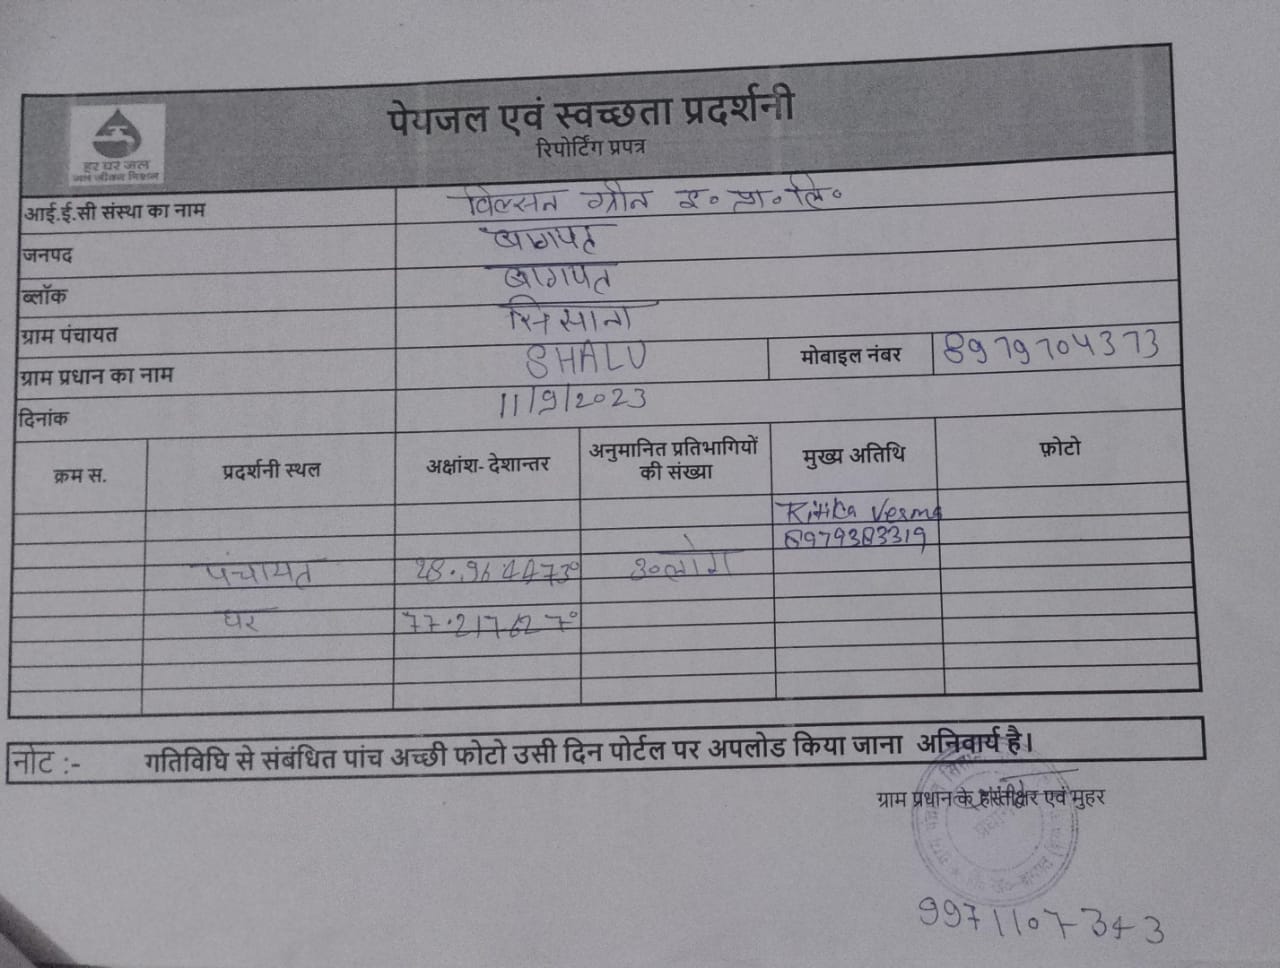 पेयजल एवं स्वच्छता प्रदर्शनी
रिपोर्टिंग प्रपत्र
हर घर जल
जल जीवन मिशन
आई.ई.सी संस्था का नाम विल्सन ग्रीन इ० प्रा० लि०
जनपद बागपत
ब्लॉक बागपत
ग्राम पंचायत सिसाना
ग्राम प्रधान का नाम SHALU मोबाइल नंबर 8979704373
दिनांक 11/9/2023
क्रम स. प्रदर्शनी स्थल अक्षांश- देशान्तर अनुमानित प्रतिभागियों की संख्या मुख्य अतिथि फ़ोटो
Ritika Verma
8979383319
पंचायत 28.964473° 30 लोग
घर 77.217627°
नोट :- गतिविधि से संबंधित पांच अच्छी फोटो उसी दिन पोर्टल पर अपलोड किया जाना अनिवार्य है।
ग्राम प्रधान के हस्ताक्षर एवं मुहर
प्रधान
9971107343